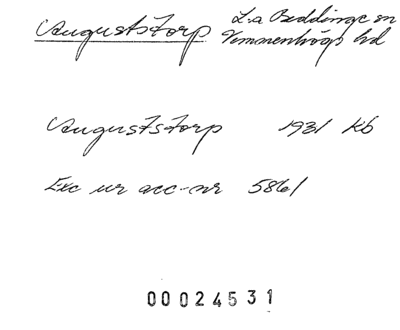 Auguststorp L:a Beddinge sn
Vemmenhögs hd
Auguststorp 1931 Kb
Exc ur acc-nr 5861
00024531